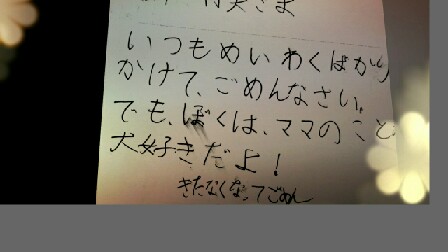 さま
いつもめいわくばかり
かけて、ごめんなさい。
でも、ぼくは、ママのこと
大好きだよ！
きたなくなってごめん